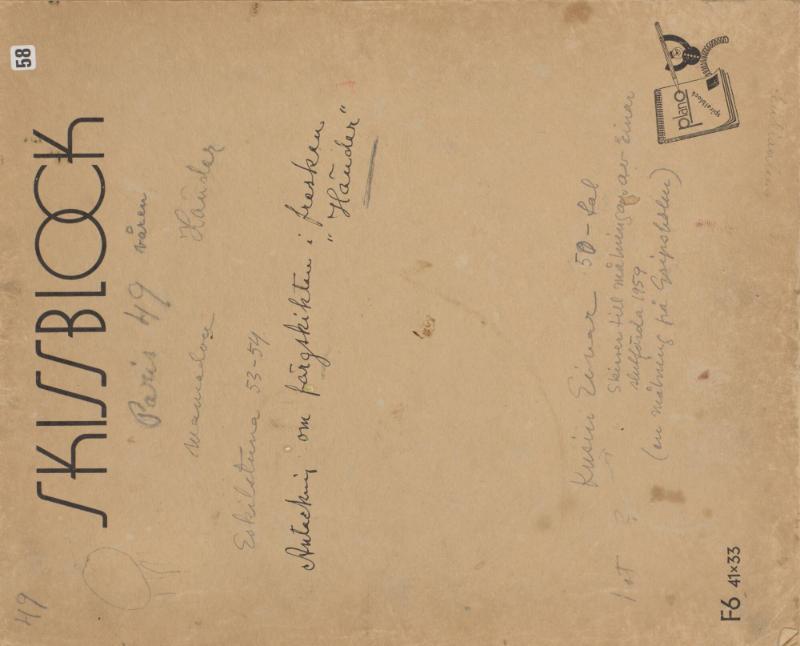 58
49
SKISSBLOCK
Paris 49 våren
Händer
Eskilstuna 53-54
Anteckning om färgskikten i fresken
"Händer"
Kusin Einar 50-tal
Skisser till målningar av Einar
slutförda 1959
(en målning på Gripsholm)
1 st
plano
spiralblock
F6 41×33